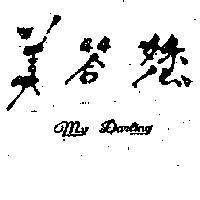 美答怒
My Darling